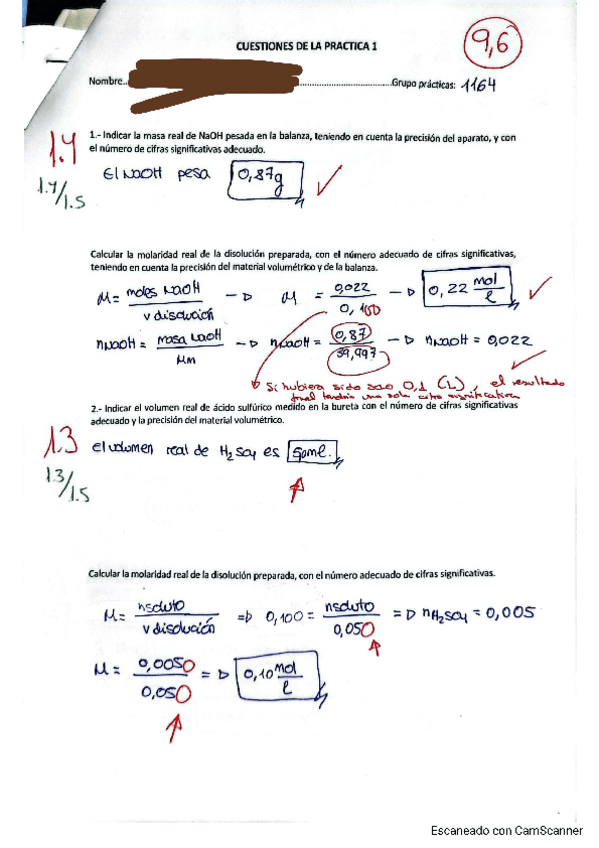 CUESTIONES DE LA PRACTICA 1
9,6
Nombre.. Grupo prácticas: 1164
1.- Indicar la masa real de NaOH pesada en la balanza, teniendo en cuenta la precisión del aparato, y con
el número de cifras significativas adecuado.
1.4
1.4/1.5
El NaOH pesa 0,87g
Calcular la molaridad real de la disolución preparada, con el número adecuado de cifras significativas,
teniendo en cuenta la precisión del material volumétrico y de la balanza.
M = moles NaOH / v disolución → M = 0,022 / 0,100 → 0,22 mol/l
nNaOH = masa NaOH / Mm → nNaOH = 0,87 / 39,997 → nNaOH = 0,022
Si hubiera sido 0,1 (L), el resultado
final tendría una sola cifra significativa
2.- Indicar el volumen real de ácido sulfúrico medido en la bureta con el número de cifras significativas
adecuado y la precisión del material volumétrico.
1.3
1.3/1.5
el volumen real de H2SO4 es 50ml.
Calcular la molaridad real de la disolución preparada, con el número adecuado de cifras significativas.
M = nsoluto / v disolución => 0,100 = nsoluto / 0,050 => nH2SO4 = 0,005
M = 0,0050 / 0,050 => 0,10 mol/l
Escaneado con CamScanner